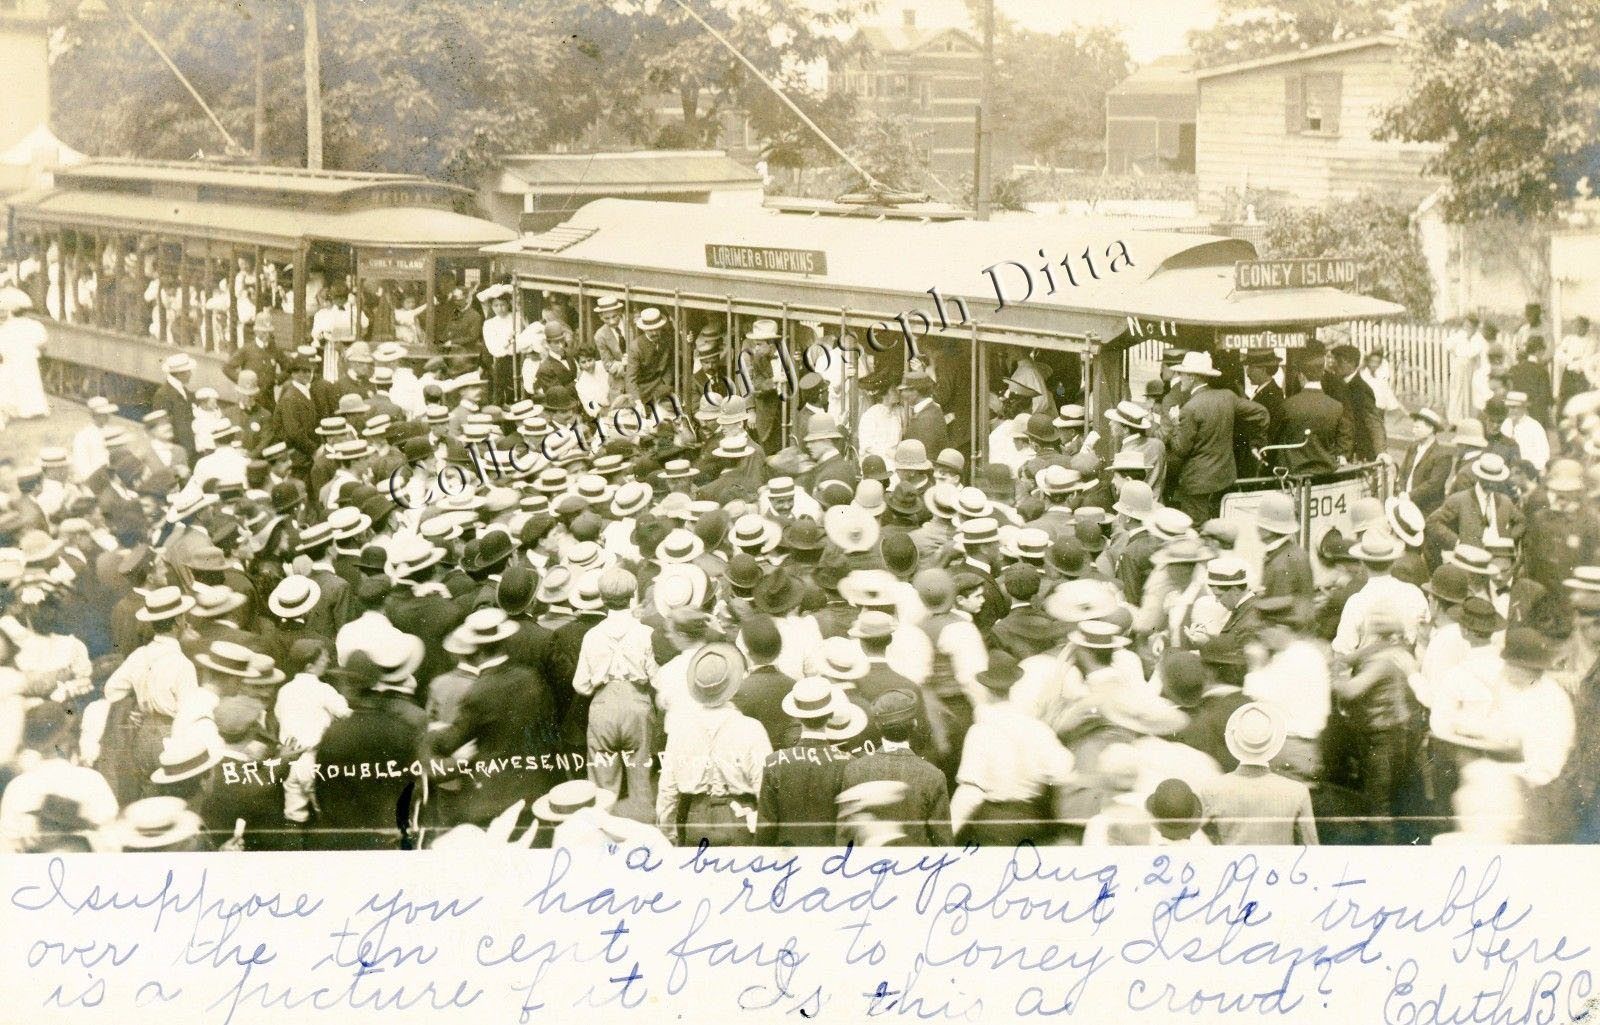 REID AV.
CONEY ISLAND
LORIMER & TOMPKINS
CONEY ISLAND
No 11
CONEY ISLAND
304
Collection of Joseph Ditta
B.R.T. TROUBLE-ON-GRAVESEND-AVE. AUG 12-06
"a busy day" Aug. 20, 906.
I suppose you have read about the trouble
over the ten cent fare to Coney Island. Here
is a picture of it. Is this a crowd? Edith B.C.